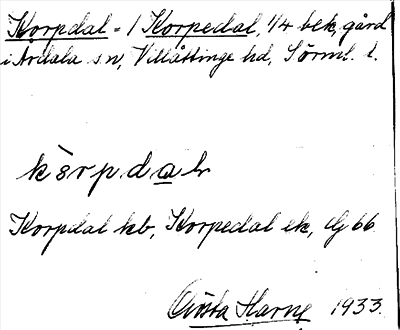 Korpdal = / Korpedal, 1/4 bek, gård
i Ardala sn, Villåttinge hd, Sörml. l.
Korpdal kb, Korpedal ek, Gg 66
Gösta Harne 1933.